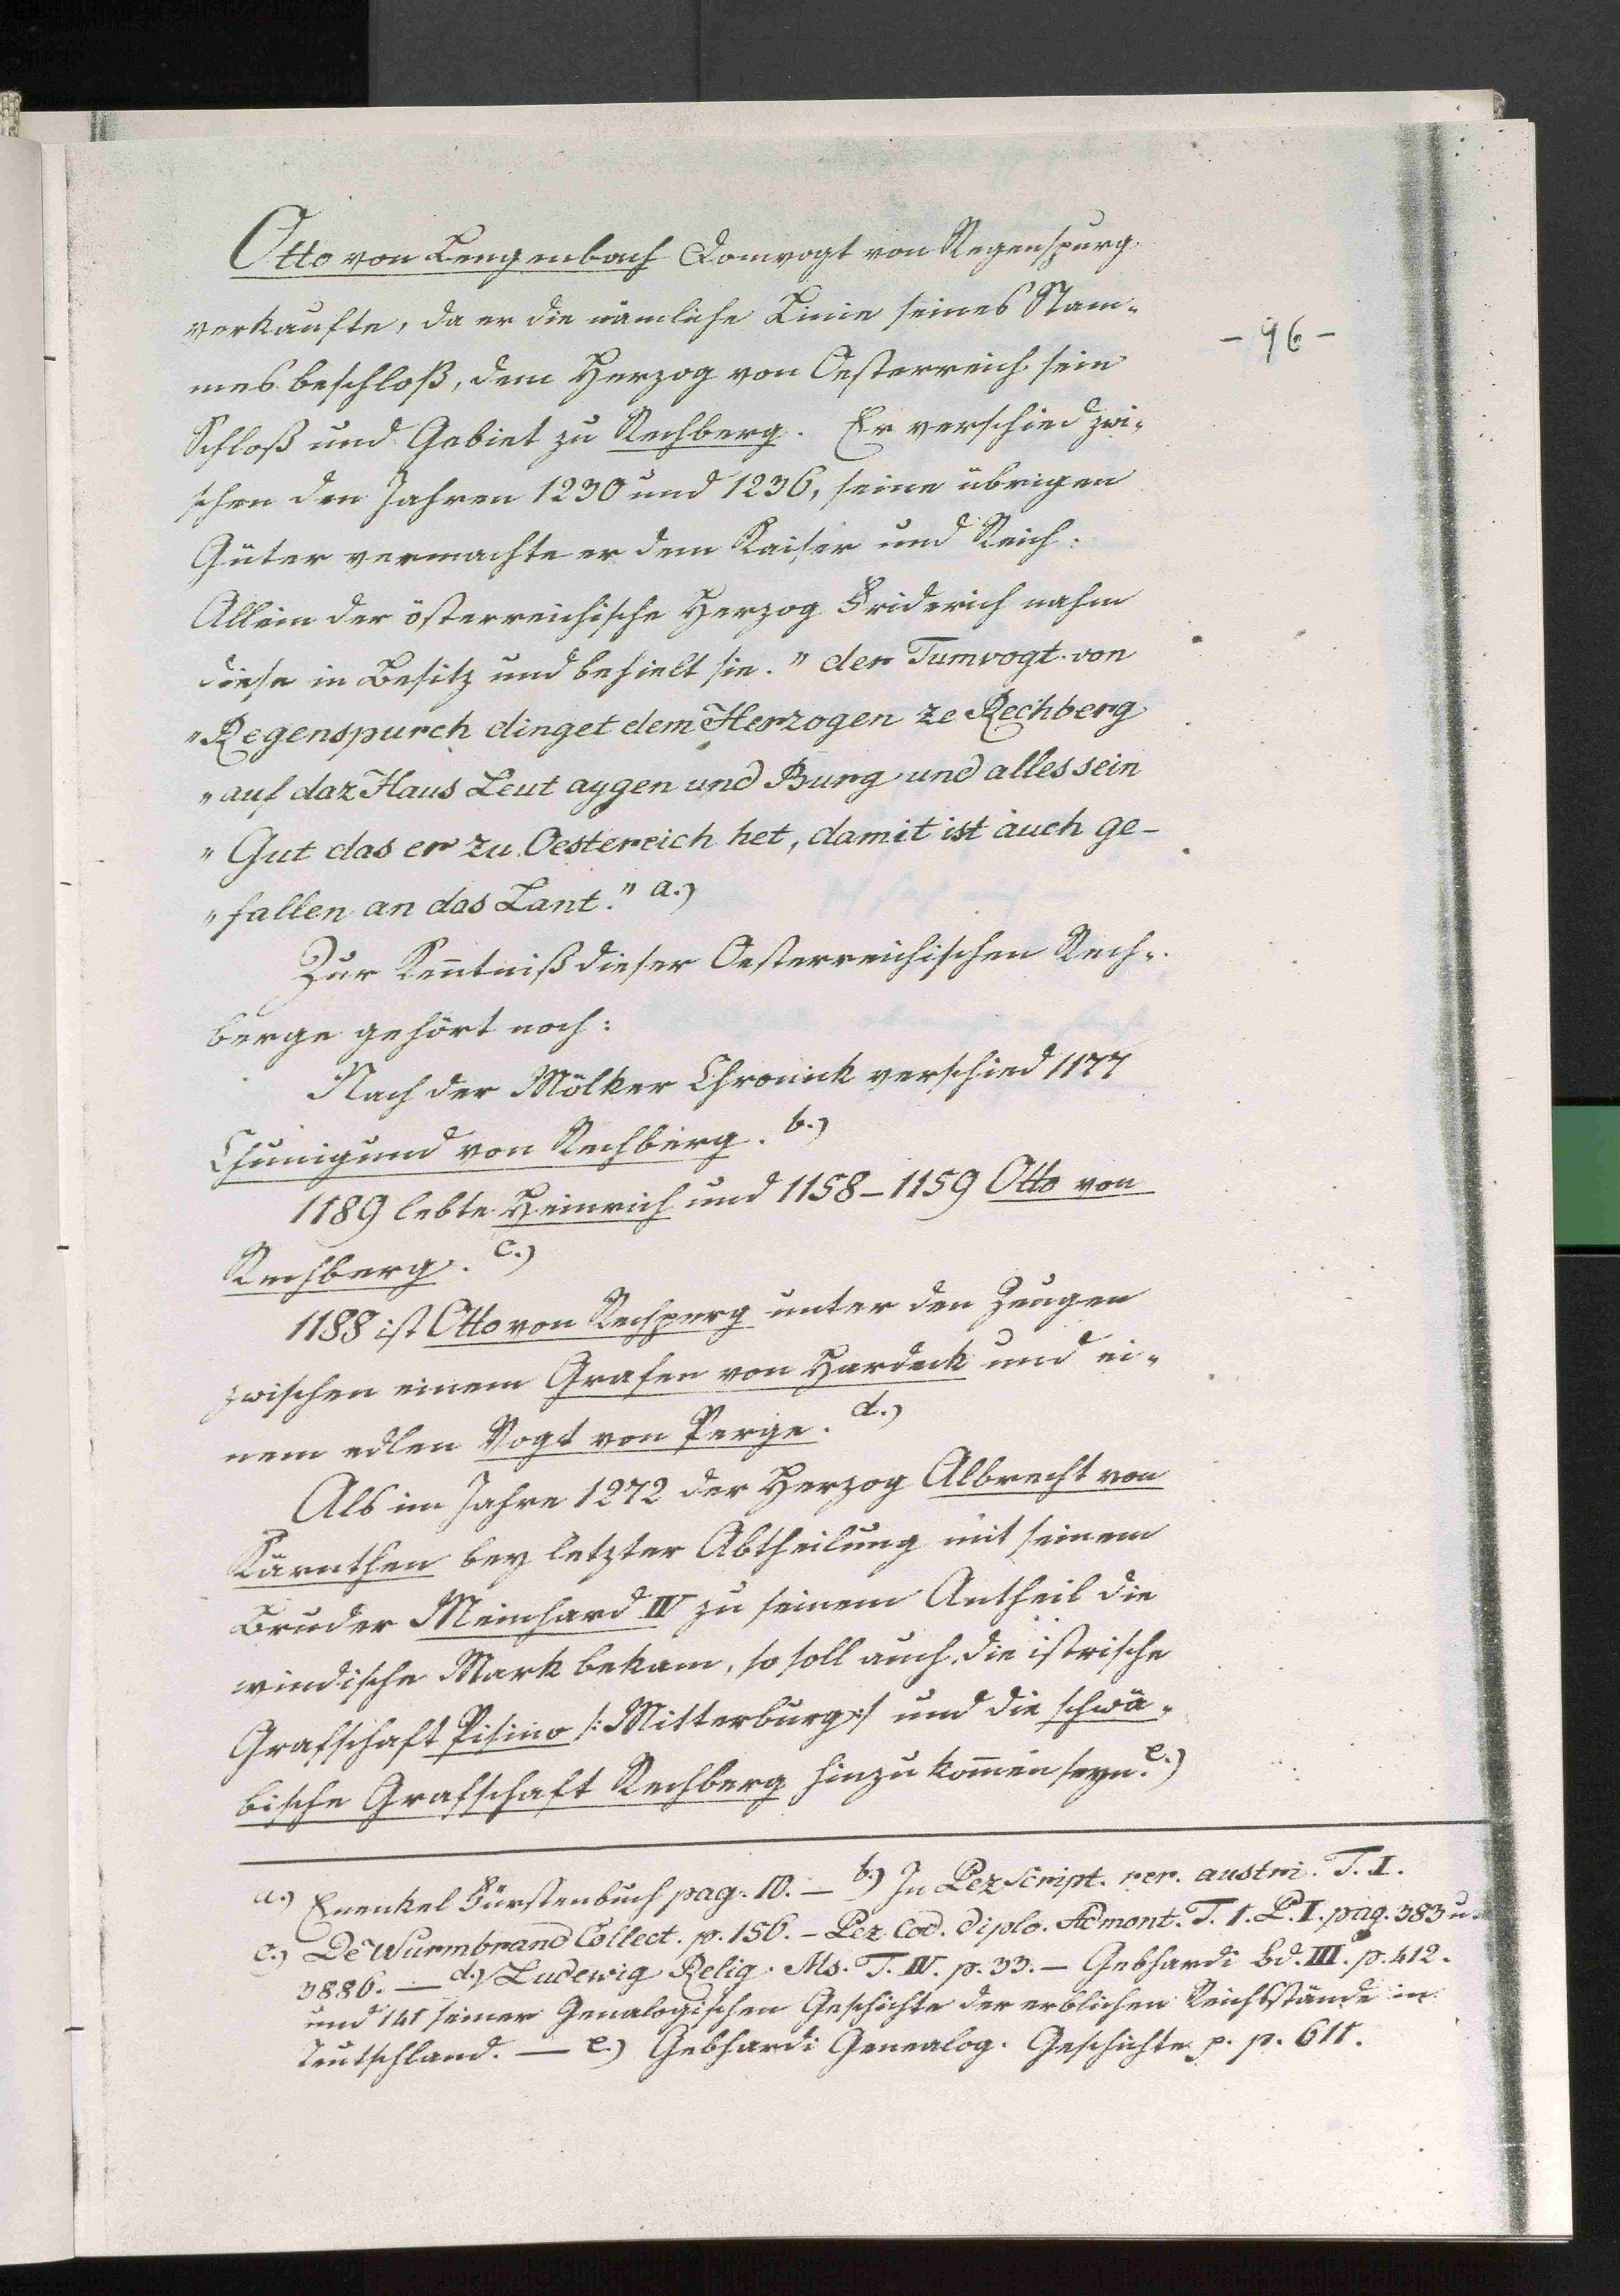 Otto von Lengenbach Domvogt von Regenspurg
verkaufte, da er die nämliche Linie seines Stam-
mes beschloß, dem Herzog von Oesterreich sein
Schloß und Gebiet zu Rechberg. Er verschied zwi-
schen den Jahren 1230 und 1236, seine übrigen
Güter vermachte er dem Kaiser und Reich:
Allein der österreichische Herzog Friderich nahm
diese in Besitz und behielt sie. "der Tumvogt von
"Regenspurch dinget dem Herzogen ze Rechberg
"auf daz Haus Leut aygen und Burg und alles sein
"Gut das er zu Oestereich het, damit ist auch ge-
"fallen an das Lant." a.)
Zur Keñtniß dieser Oesterreichischen Rech-
berge gehört noch:
Nach der Mölker Chronick verschied 1177
Chunigund von Rechberg. b.)
1189 lebte Heinrich und 1158-1159 Otto von
Rechberg. c.)
1188 ist Otto von Rechperg unter den Zeugen
zwischen einem Grafen von Hardeck und ei-
nem edlen Vogt von Perge. d.)
Als im Jahre 1272 der Herzog Albrecht von
Kärnthen bey letzter Abtheilung mit seinem
Bruder Meinhard IV zu seinem Antheil die
windische Mark bekam, so soll auch die istrische
Grafschaft Pisino /: Mitterburg :/ und die schwä-
bische Grafschaft Rechberg hinzu kom̃en seyn. e.)
- 96 -
a.) Enenkel Fürstenbuch pag. 10. — b.) In Pez Script. rer. austri. T. I.
c.) De Wurmbrand Collect. p. 156. - Pez Cod. diplo. Admont. T. 1. P. I. pag. 383 u.
3886. — d.) Ludewig Relig. Ms. T. IV. p. 33. - Gebhardi Bd. III. p. 412.
und 141 seiner Genalogischen Geschichte der erblichen Reichsstände in
Teutschland. — e.) Gebhardi Genealog. Geschichte p. p. 611.